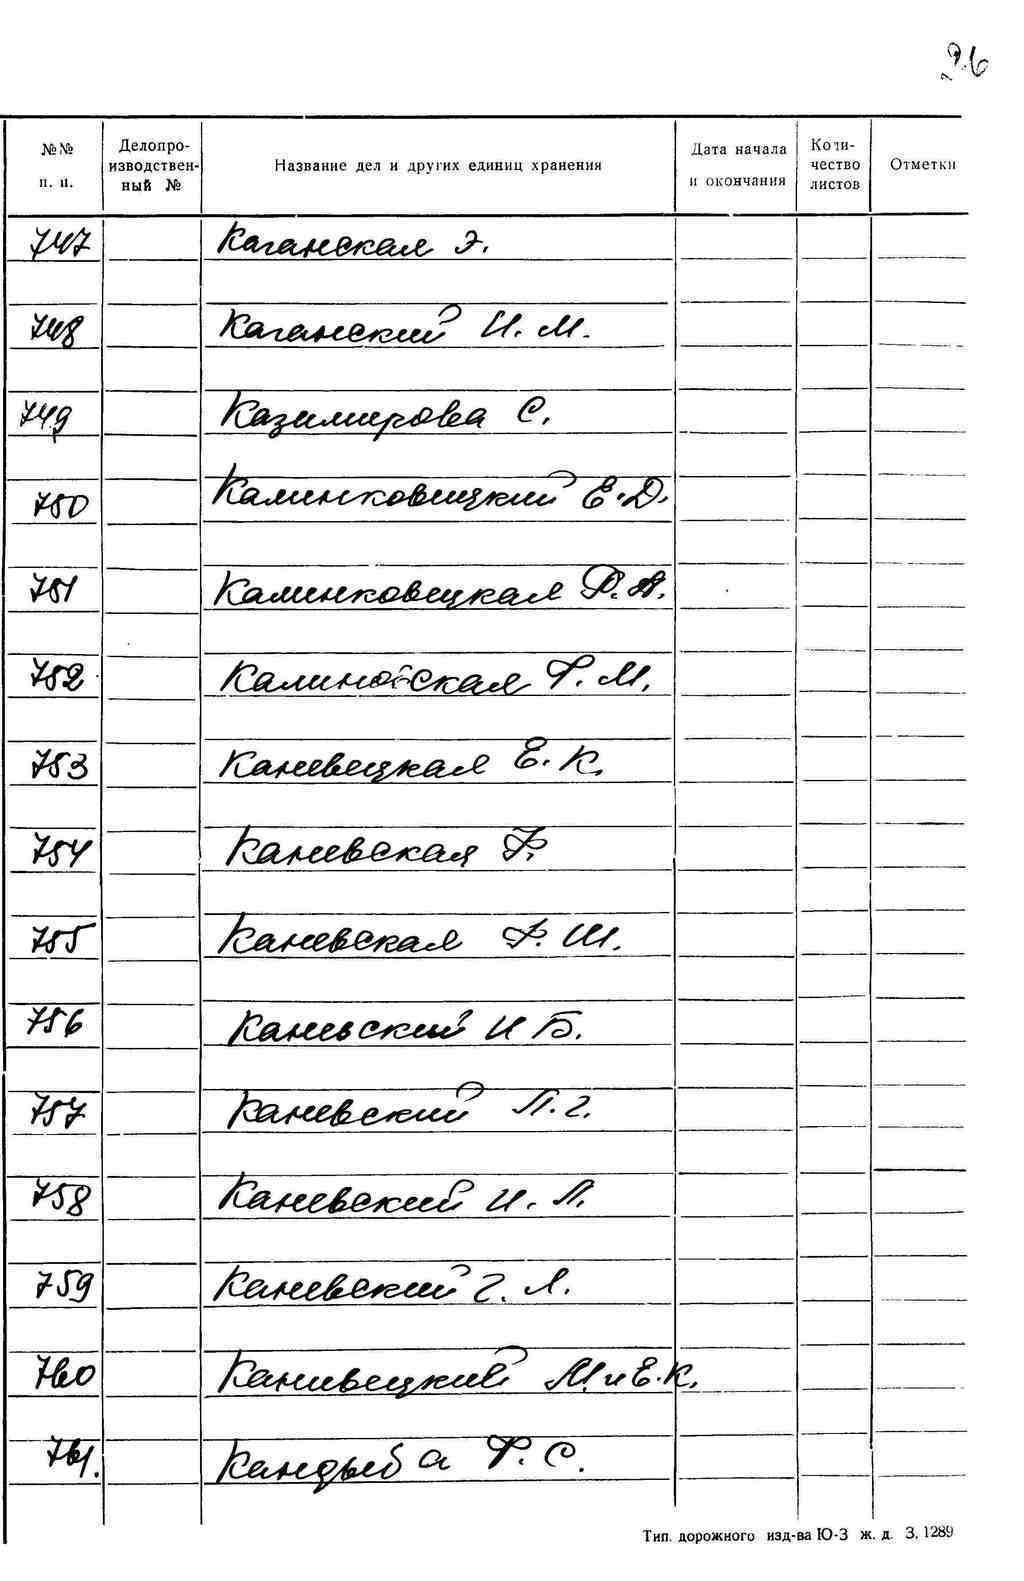 96
№№ п. п.
Делопроизводственный №
Название дел и других единиц хранения
Дата начала и окончания
Количество листов
Отметки
747 Каганская Э.
748 Каганский И. М.
749 Казимирова С.
750 Калинковицкий Е. Д.
751 Калинковецкая Р. А.
752 Калиновская Ф. М.
753 Каневецкая Е. К.
754 Каневская Ф.
755 Каневская Ф. Ш.
756 Каневский И Б.
757 Каневский П. Г.
758 Каневский И. Л.
759 Каневский Г. Л.
760 Канивецкий М. и Е. К.
761. Кандыба Ф. С.
Тип. дорожного изд-ва Ю-З ж. д. З. 1289